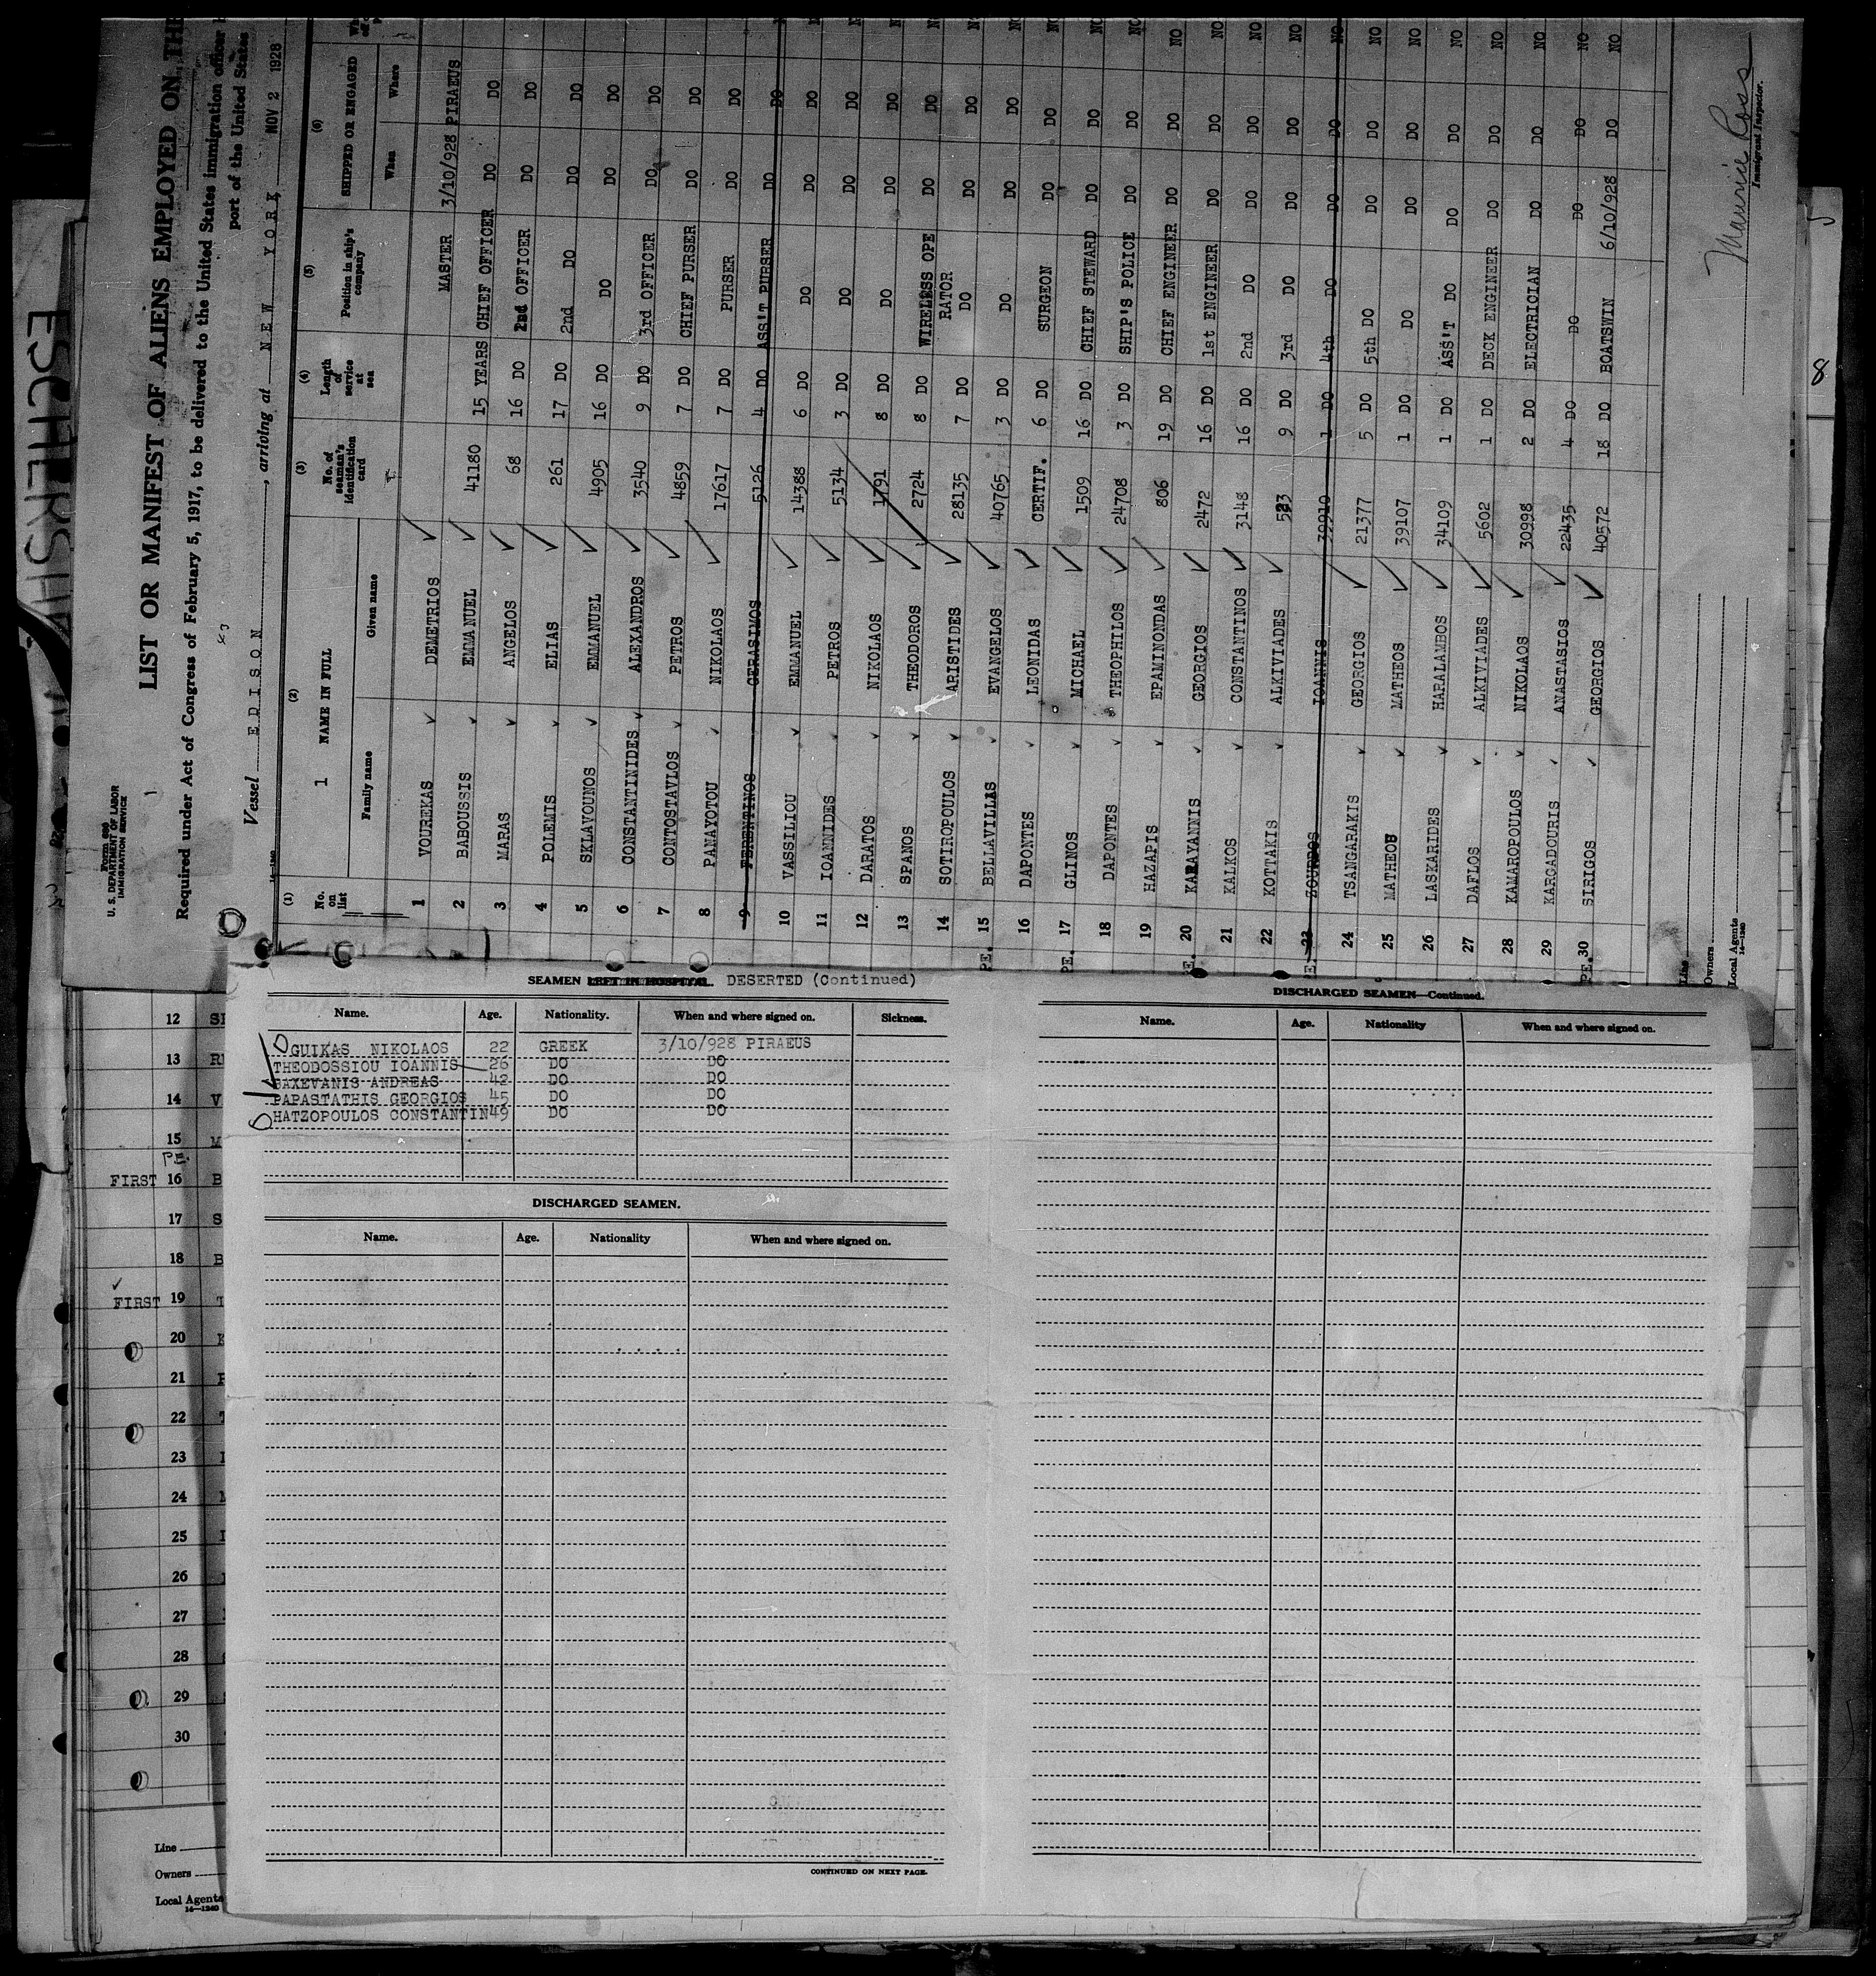 ESCHERSHE
Form 680
U. S. DEPARTMENT OF LABOR
IMMIGRATION SERVICE
LIST OR MANIFEST OF ALIENS EMPLOYED ON THE
Required under Act of Congress of February 5, 1917, to be delivered to the United States immigration officer
port of the United States
Vessel EDISON, arriving at NEW YORK NOV 2 1928
14-1240
(1) (2) (3) (4) (5) (6)
No. on list 1 NAME IN FULL No. of seaman's identification card Length of service at sea Position in ship's company SHIPPED OR ENGAGED
Family name Given name When Where
1 VOUREKAS DEMETRIOS MASTER 3/10/928 PIRAEUS
2 BABOUSSIS EMMANUEL 41180 15 YEARS CHIEF OFFICER DO DO NO
3 MARAS ANGELOS 68 16 DO 2nd OFFICER DO DO NO
4 POLEMIS ELIAS 261 17 DO 2nd DO DO DO NO
5 SKLAVOUNOS EMMANUEL 4905 16 DO DO DO DO NO
6 CONSTANTINIDES ALEXANDROS 3540 9 DO 3rd OFFICER DO DO NO
7 CONTOSTAVLOS PETROS 4859 7 DO CHIEF PURSER DO DO NO
8 PANAYOTOU NIKOLAOS 17617 7 DO PURSER DO DO NO
9 FERENTINOS GERASIMOS 5126 4 DO ASS'T PURSER DO DO
10 VASSILIOU EMMANUEL 14388 6 DO DO DO DO NO
11 IOANNIDES PETROS 5134 3 DO DO DO DO NO
12 DARATOS NIKOLAOS 1791 8 DO DO DO DO NO
13 SPANOS THEODOROS 2724 8 DO WIRELESS OPERATOR DO DO NO
14 SOTIROPOULOS ARISTIDES 28135 7 DO DO DO DO NO
PE. 15 BELLAVILLAS EVANGELOS 40765 3 DO DO DO DO NO
16 DAPONTES LEONIDAS CERTIF. 6 DO SURGEON DO DO NO
PE. 17 GLINOS MICHAEL 1509 16 DO CHIEF STEWARD DO DO NO
18 DAPONTES THEOPHILOS 24708 3 DO SHIP'S POLICE DO DO NO
19 HAZAPIS EPAMINONDAS 806 19 DO CHIEF ENGINEER DO DO NO
PE. 20 KARAYANNIS GEORGIOS 2472 16 DO 1st ENGINEER DO DO NO
21 KALKOS CONSTANTINOS 3148 16 DO 2nd DO DO DO NO
22 KOTTAKIS ALKIVIADES 523 9 DO 3rd DO DO DO NO
PE. 23 ZOURDOS IOANNIS 39910 1 DO 4th DO DO DO NO
24 TSANGARAKIS GEORGIOS 21377 5 DO 5th DO DO DO NO
25 MATHEOU MATHEOS 39107 1 DO DO DO DO NO
26 LASKARIDES HARALAMBOS 34109 1 DO ASS'T DO DO DO NO
27 DAFLOS ALKIVIADES 5602 1 DO DECK ENGINEER DO DO NO
28 KAMAROPOULOS NIKOLAOS 30998 2 DO ELECTRICIAN DO DO NO
29 KARGADOURIS ANASTASIOS 22435 4 DO DO DO DO NO
PE. 30 SIRIGOS GEORGIOS 40572 18 DO BOATSWIN 6/10/928 DO NO
Line
Owners
Local Agents
14-1240
Maurice Ross
Immigrant Inspector.
8
SEAMEN LEFT IN HOSPITAL. DESERTED (Continued)
Name. Age. Nationality. When and where signed on. Sickness.
GUIKAS NIKOLAOS 22 GREEK 3/10/928 PIRAEUS
THEODOSSIOU IOANNIS 26 DO DO
BAXEVANIS ANDREAS 42 DO DO
PAPASTATHIS GEORGIOS 45 DO DO
HATZOPOULOS CONSTANTIN 49 DO DO
DISCHARGED SEAMEN.
Name. Age. Nationality When and where signed on.
CONTINUED ON NEXT PAGE.
DISCHARGED SEAMEN—Continued.
Name. Age. Nationality When and where signed on.
12
13
14
15
PE.
FIRST 16
17
18
FIRST 19
20
21
22
23
24
25
26
27
28
29
30
Line
Owners
Local Agents
14-1240